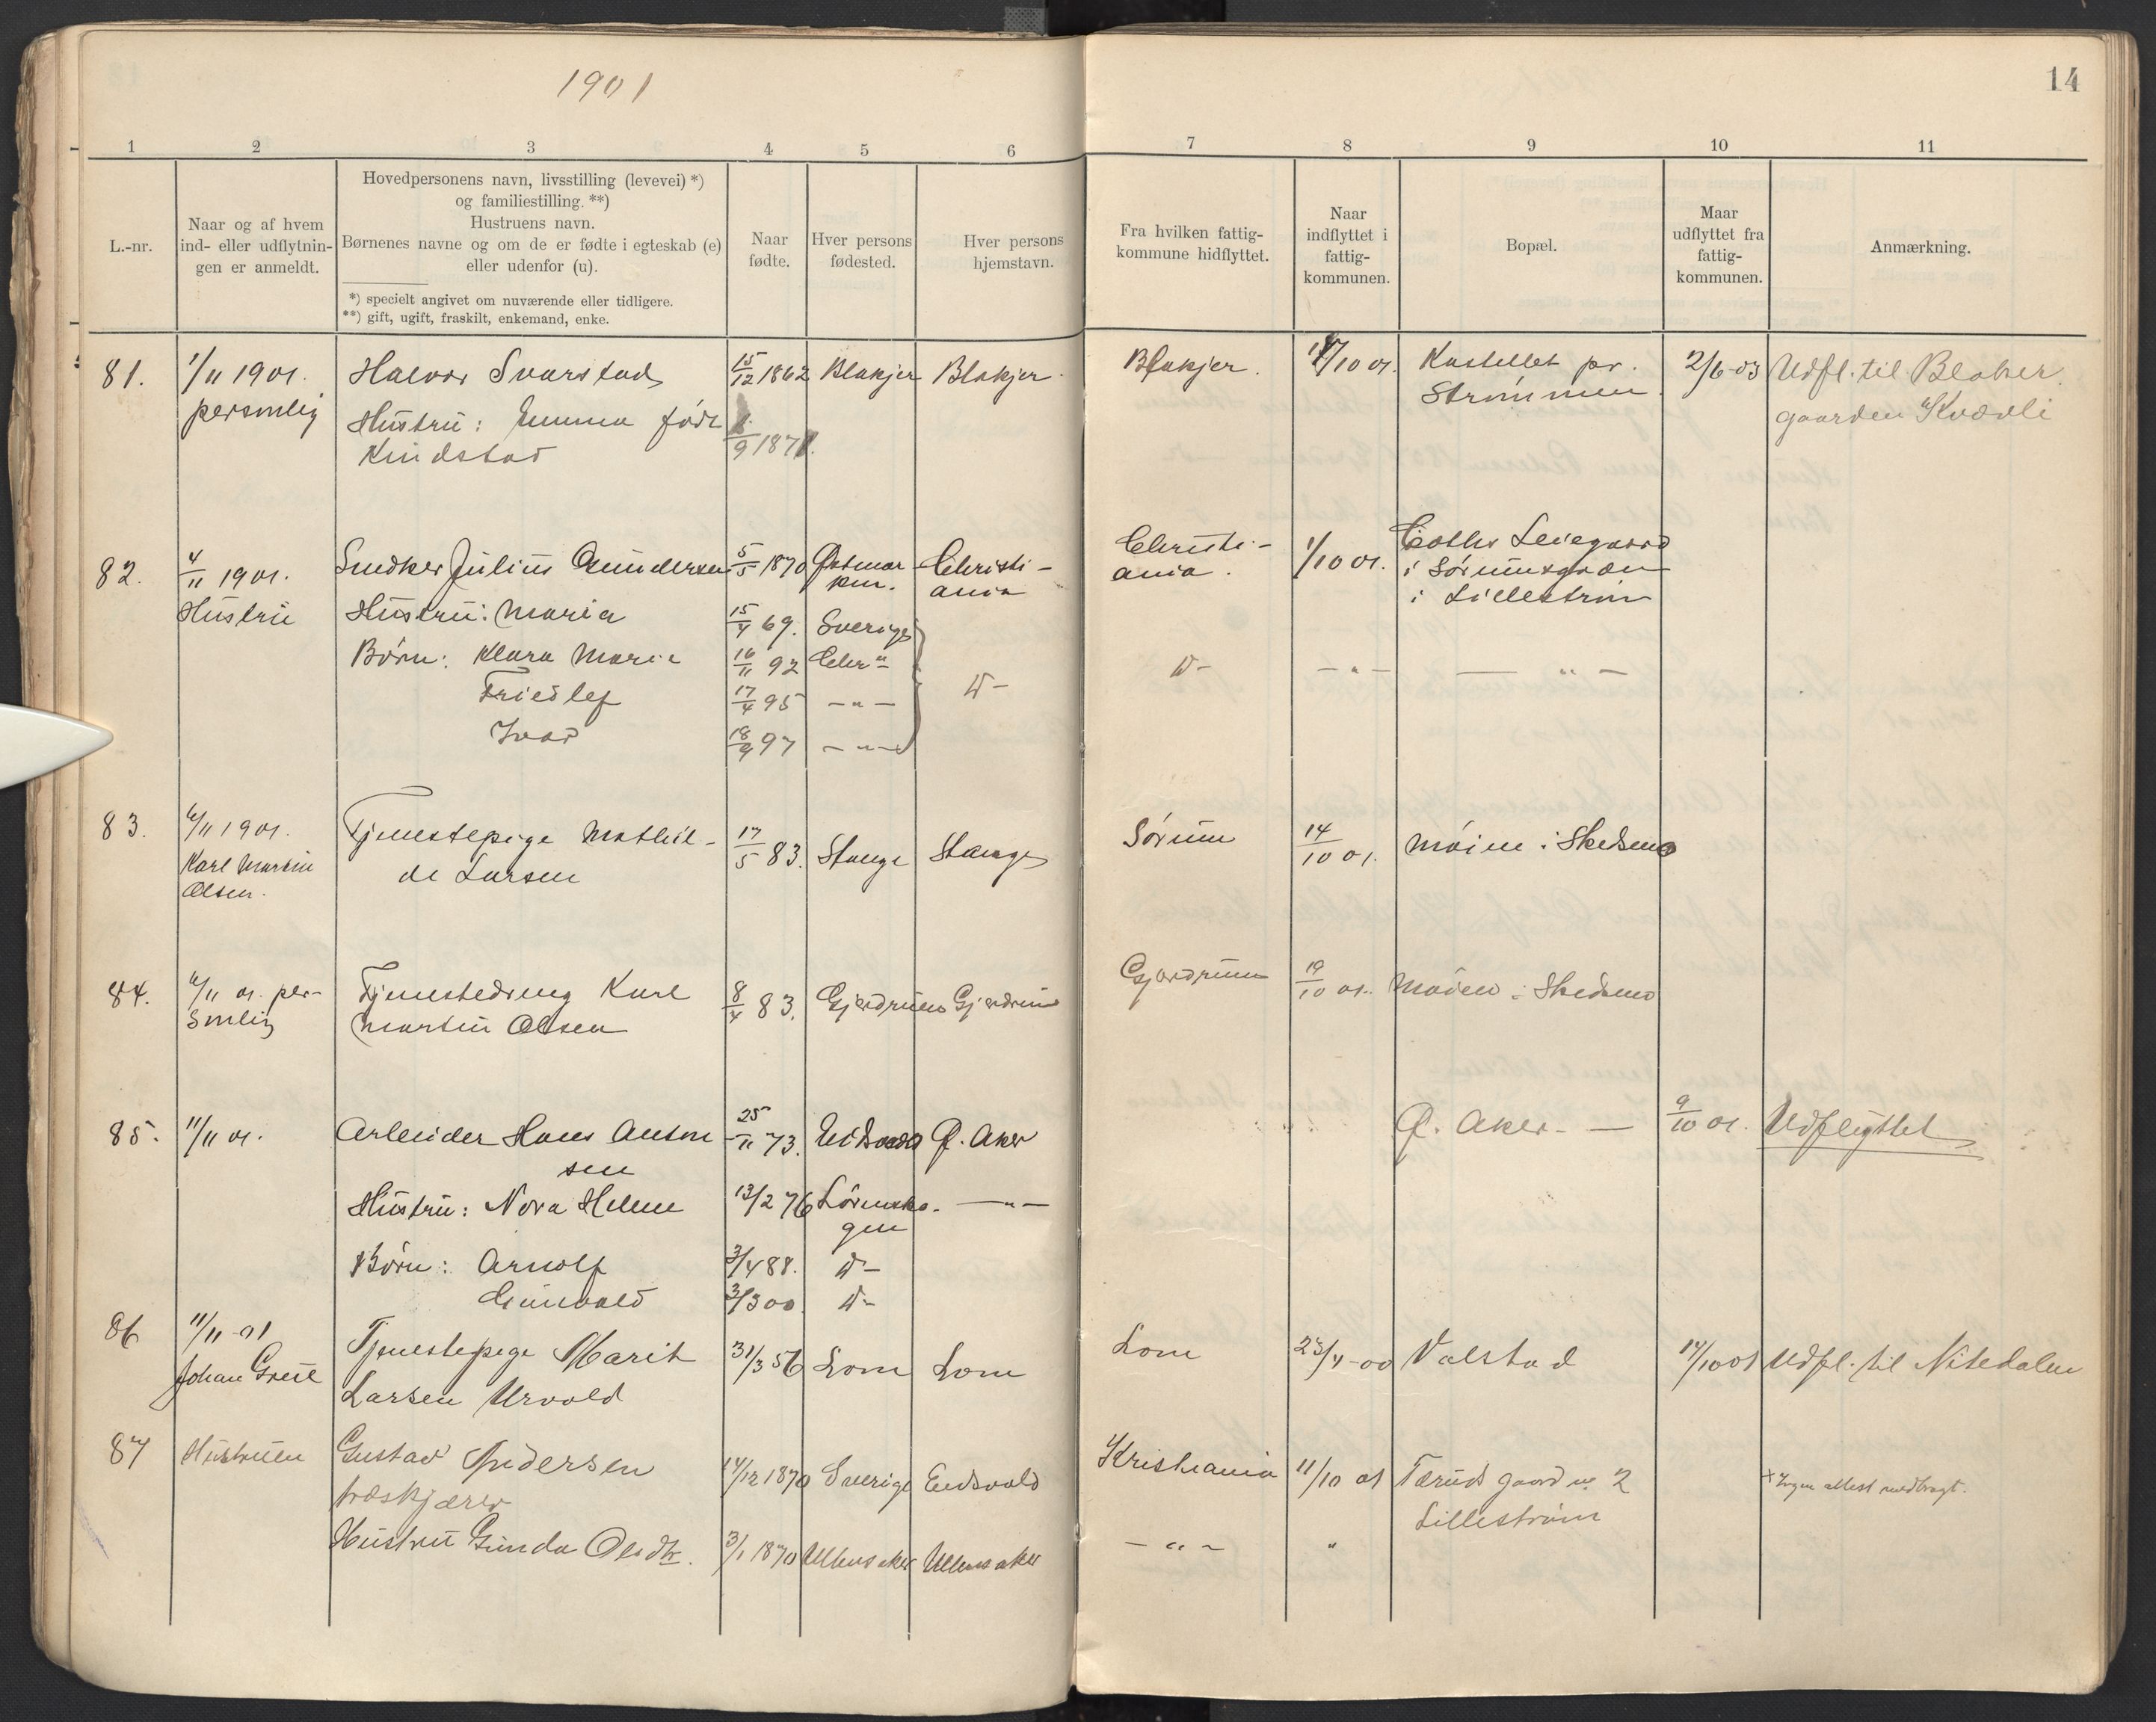 1901
14
1 2 3 4 5 6 7 8 9 10 11
L.-nr.
Naar og af hvem
ind- eller udflytnin-
gen er anmeldt.
Hovedpersonens navn, livsstilling (levevei) *)
og familiestilling. **)
Hustruens navn.
Børnenes navne og om de er fødte i egteskab (e)
eller udenfor (u).
*) specielt angivet om nuværende eller tidligere.
**) gift, ugift, fraskilt, enkemand, enke.
Naar
fødte.
Hver persons
fødested.
Hver persons
hjemstavn.
Fra hvilken fattig-
kommune hidflyttet.
Naar
indflyttet i
fattig-
kommunen.
Bopæl.
Maar
udflyttet fra
fattig-
kommunen.
Anmærkning.
81. 1/11 1901. Halvor Svarstad 15/12 1862 Blakjer Blakjer. Blakjer. /10 01. Kastellet pr. 2/6-03 Udfl. til Blaker.
personlig Hustru: Emma født /9 187 Strømmen gaarden Kvævli
Kindstad
82. 4/11 1901. Snedker Julius Gundersen 5/5 1870 Christi- Christi- 1/10 01. Leiegaard
Hustru ania ania. i Sørumsgaden
Hustru: Maria 15/4 69. Sverige i Lillestrøm
Børn: Klara Marie 16/11 92 Chra D- D- -"- -"-
Friedlef 17/4 95 -"-
Ivar 18/9 97 -"-
83. 6/11 1901. Tjenestepige Mathil- 17/5 83. Stange Stange Sørum 14/10 01. Moien i Skedsmo
Karl Martin de Larsen
Olsen.
84. 6/11 01. per- Tjenestedreng Karl 8/4 83. Gjerdrum Gjerdrum Gjerdrum 19/10 01. Moien i Skedsmo
sonlig Martin Olsen
85. 11/11 01. Arbeider Hans Anton 25/11 73. Eidsvold Ø. Aker Ø. Aker - 9/10 01. Udflyttet
sen
Hustru: Nora Helene 13/2 76 Lørensko- -"-
gen
Børn: Arnolf 3/4 88. D-
Gunvald 3/3 00. D-
86 11/11-01 Tjenestepige Marit 31/3 56 Lom Lom Lom 23/4-00 Valstad 14/10 01 Udfl. til Nitedalen
Johan Larsen Urvold
87 Hustruen Gustav Andersen 14/12 1870 Sverige Eidsvold Kristiania 11/10 01 Færuds gaard no 2 + Ingen attest medbragt.
træskjærer Lillestrøm
Hustru Gunda Olsdtr. 3/1 1870 Ullensaker Ullensaker -"- "